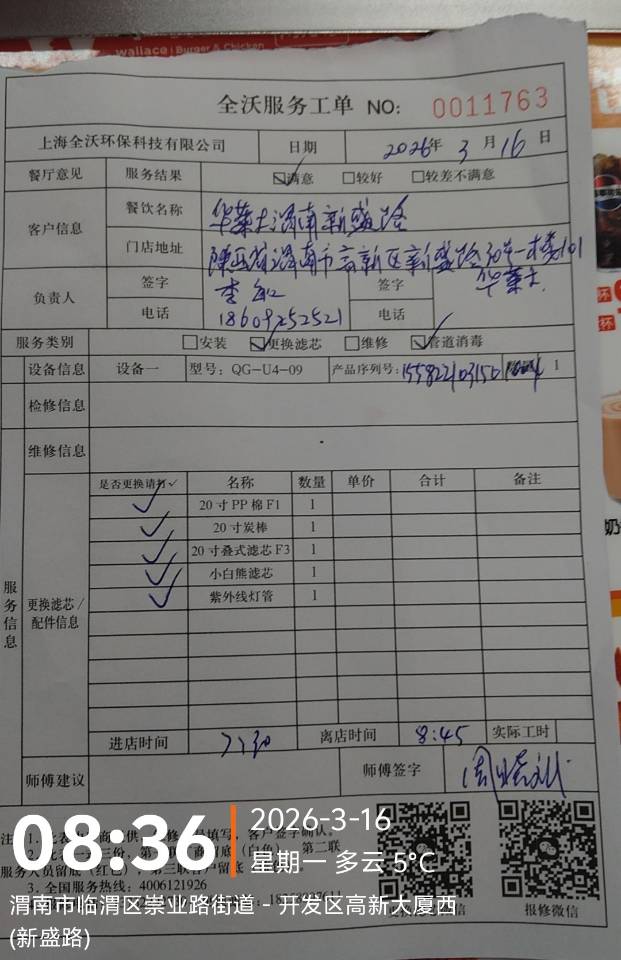 wallace | Burger & Chicken
全沃服务工单 NO: 0011763
上海全沃环保科技有限公司 日期 2026年 3 月 16 日
餐厅意见 服务结果 ☑满意 □较好 □较差不满意
客户信息 餐饮名称 华莱士渭南新盛路
门店地址 陕西省渭南市高新区新盛路30号一楼101
负责人 签字 签字 华莱士
电话 18609252521 电话
服务类别 □安装 ☑更换滤芯 □维修 ☑管道消毒
设备信息 设备一 型号: QG-U4-09 产品序列号: 1
检修信息
维修信息
服务信息 更换滤芯/配件信息
是否更换请打✓ 名称 数量 单价 合计 备注
✓ 20寸PP棉F1 1
✓ 20寸炭棒 1
✓ 20寸叠式滤芯F3 1
✓ 小白熊滤芯 1
✓ 紫外线灯管 1
进店时间 7:30 离店时间 8:45 实际工时
师傅建议 师傅签字
3. 全国服务热线: 4006121926
报修微信
08:36
2026-3-16
星期一 多云 5℃
渭南市临渭区崇业路街道-开发区高新大厦西
(新盛路)